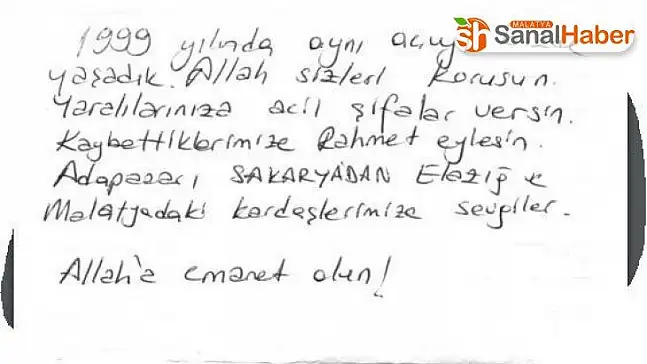 MALATYA
SanalHaber
1999 yılında aynı acıyı
yaşadık. Allah sizleri korusun.
Yaralılarınıza acil şifalar versin.
Kaybettiklerimize Rahmet eylesin.
Adapazarı SAKARYA'DAN Elazığ ve
Malatyadaki kardeşlerimize sevgiler.
Allah'a emanet olun!